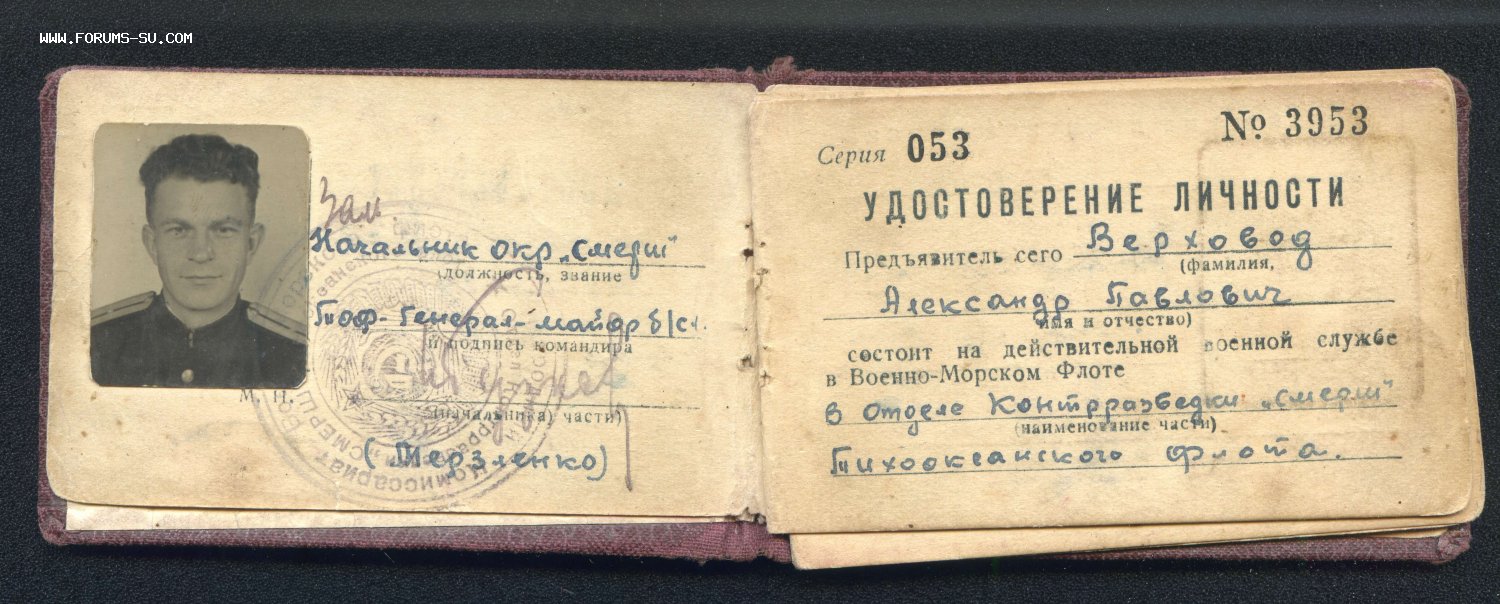 WWW.FORUMS-SU.COM
Зам.
Начальник окр „Смерш"
(должность, звание
Тоф - Генерал-майор б/сл.
и подпись командира
М. П.
(начальника) части)
(Мерзленко)
Серия 053
№ 3953
УДОСТОВЕРЕНИЕ ЛИЧНОСТИ
Предъявитель сего Верховод
(фамилия,
Александр Павлович
имя и отчество)
состоит на действительной военной службе
в Военно-Морском Флоте
в Отделе Контрразведки „Смерш"
(наименование части)
Тихоокеанского Флота.